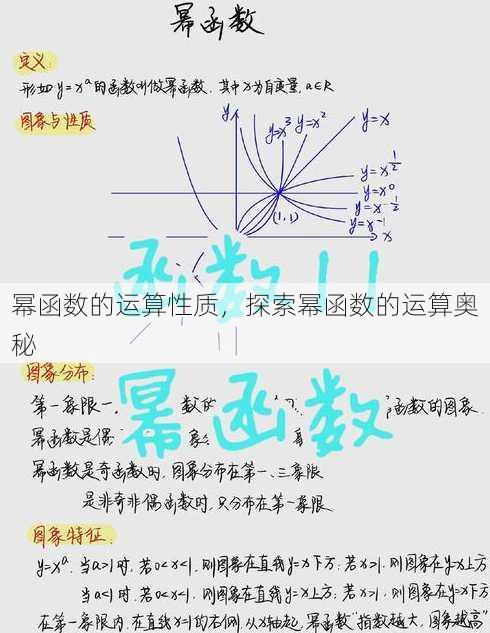 幂函数
定义:
形如y=x^a的函数叫做幂函数.其中x为自变量,a∈R
图象与性质
y
y=x^3
y=x^2
y=x
y=x^{1/2}
y=x^0
y=x^{-1/2}
y=x^{-1}
(1,1)
x
函数
幂函数的运算性质,探索幂函数的运算奥
秘
图象分布:
第一象限一 函数的图象
幂函数
幂函数是偶
幂函数是奇函数时,图象分布在第一、三象限
是非奇非偶函数时,只分布在第一象限
图象特征:
y=x^a.当a>1时,若0<x<1.则图象在直线y=x下方;若x>1.则图象在y=x上方
当a<1时,若0<x<1.则图象在直线y=x上方;若x>1.则图象在y=x下方
在第一象限内,在直线x=1的右侧,从x轴起,幂函数"指数越大,图象越高"